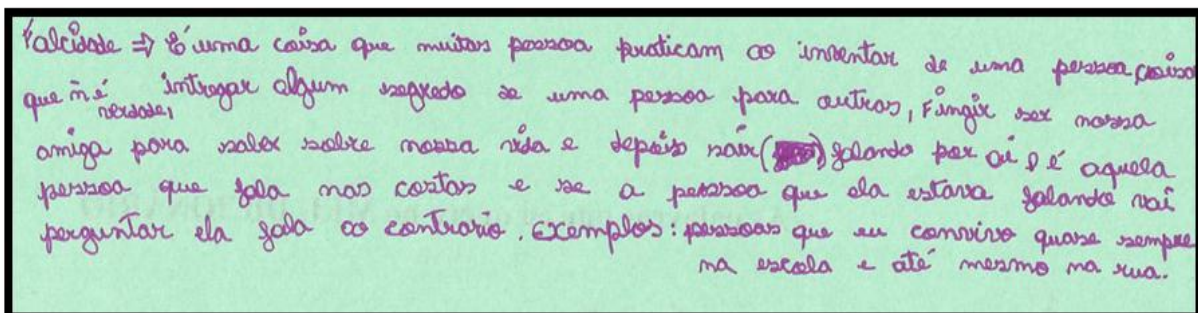 Falcidade => É uma coisa que muitas pessoa praticam ao inventar de uma pessoa, coisa
que ñ é verdade, intregar algum segredo de uma pessoa para outras, Fingir ser nossa
amiga para saber sobre nossa vida e depois sair () falando por aí e é aquela
pessoa que fala nas costas e se a pesssoa que ela estava falando vai
perguntar ela fala ao contrario. Exemplos: pessoas que eu convivo quase sempre
na escola e até mesmo na rua.